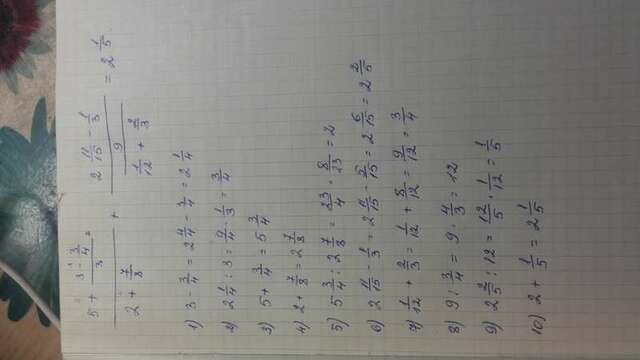 (5 + (3 - 3/4)/3)/(2 + 7/8) + (2 11/15 - 1/3)/(9/(1/12 + 2/3)) = 2 1/5.
1) 3 - 3/4 = 2 4/4 - 3/4 = 2 1/4
2) 2 1/4 : 3 = 9/4 · 1/3 = 3/4
3) 5 + 3/4 = 5 3/4
4) 2 + 7/8 = 2 7/8
5) 5 3/4 : 2 7/8 = 23/4 · 8/23 = 2
6) 2 11/15 - 1/3 = 2 11/15 - 5/15 = 2 6/15 = 2 2/5
7) 1/12 + 2/3 = 1/12 + 8/12 = 9/12 = 3/4
8) 9 : 3/4 = 9 · 4/3 = 12
9) 2 2/5 : 12 = 12/5 · 1/12 = 1/5
10) 2 + 1/5 = 2 1/5